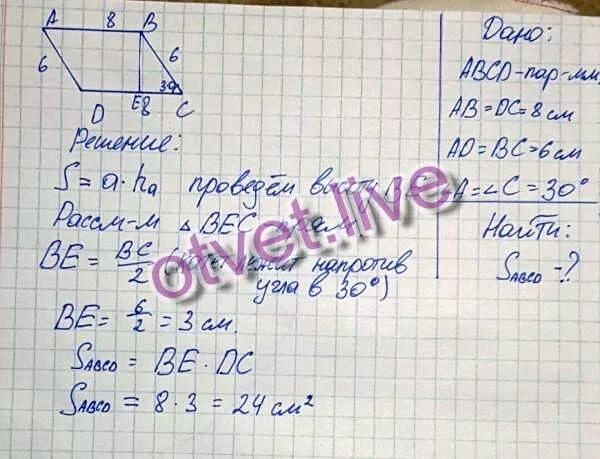 A 8 B
6 6
30°
D E 8 C
Дано:
ABCD-пар-мм,
AB=DC=8 см
AD=BC=6 см
∠A=∠C=30°
Найти:
SABCD -?
Решение:
S=a·ha проведём высоту BE
Рассм-м △BEC
BE = BC/2 (катет лежит напротив
угла в 30°)
BE = 6/2 = 3 см.
SABCD = BE · DC
SABCD = 8 · 3 = 24 см²
otvet.live